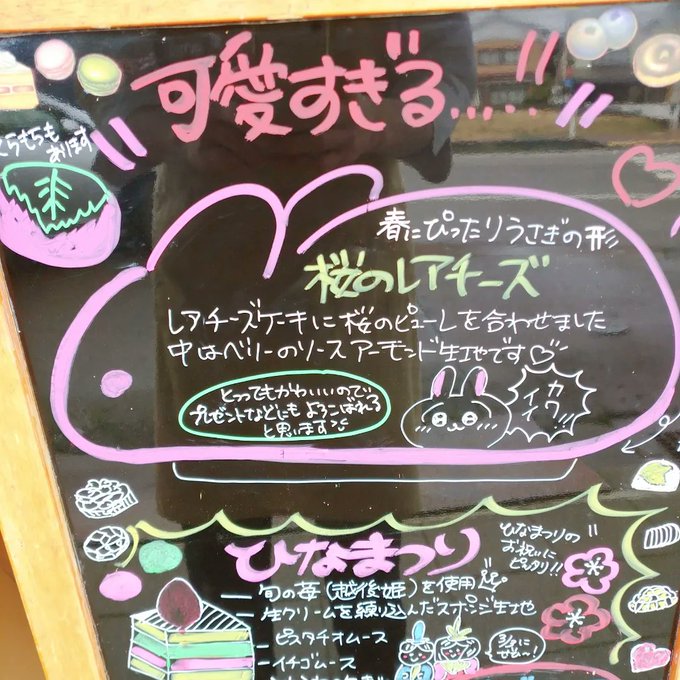 可愛すぎる.....
くらもちも
あります
春にぴったりうさぎの形
桜のレアチーズ
レアチーズケーキに桜のピューレを合わせました
中はベリーのソースアーモンド生地です♡
とってもかわいいので
プレゼントなどにもよろこばれる
と思います
カワ
イイ!!
ひなまつり
ひなまつりの
お祝いに
ピッタリ!!
旬の苺(越後姫)を使用
生クリームを練り込んだスポンジ生地
ピスタチオムース
イチゴムース
3/3に
ぜひ〜!